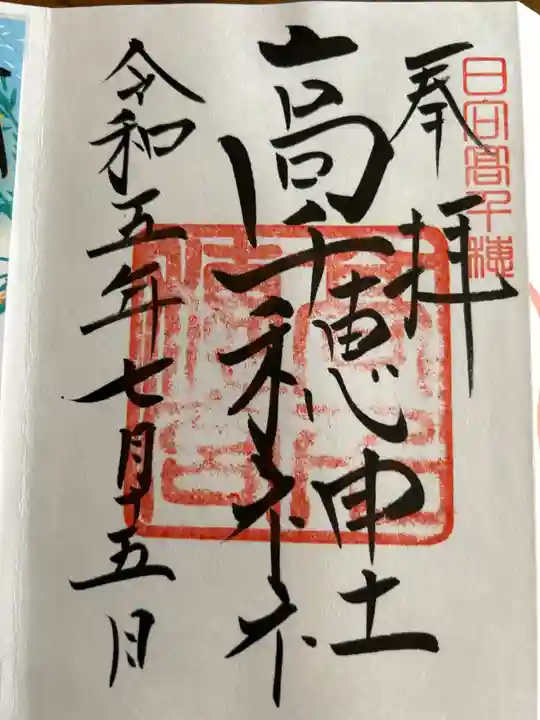 日向高千穂
奉拝
高千穂神社
令和五年七月十五日